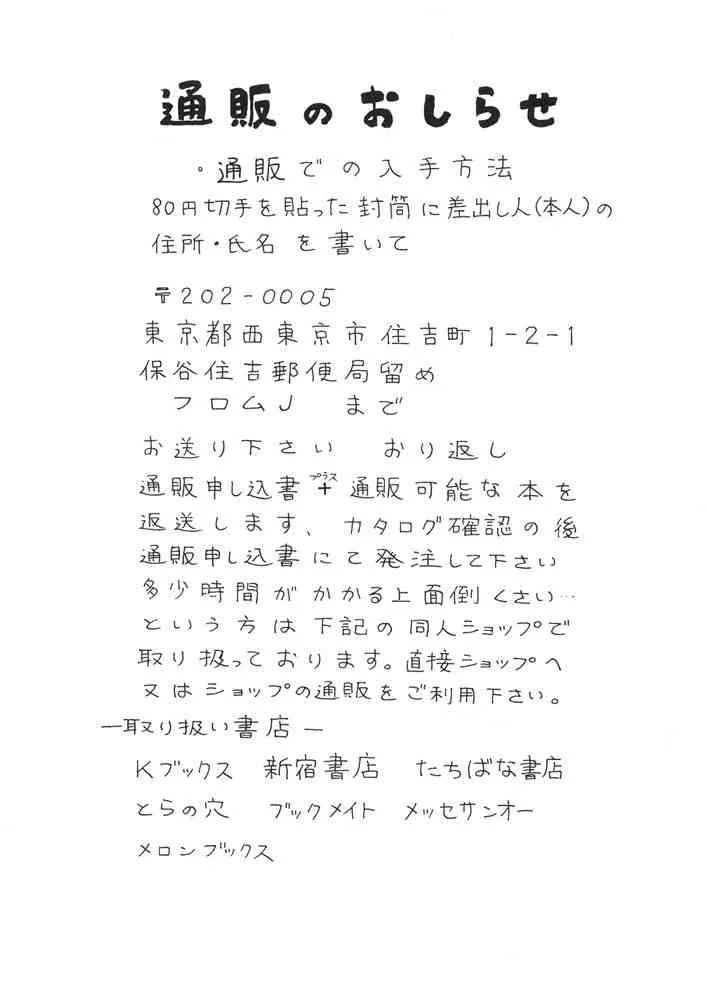 通販のおしらせ
・通販での入手方法
80円切手を貼った封筒に差出し人(本人)の
住所・氏名を書いて
〒202-0005
東京都西東京市住吉町1-2-1
保谷住吉郵便局留め
フロムJ まで
お送り下さい おり返し
通販申し込書+プラス通販可能な本を
返送します、カタログ確認の後
通販申し込書にて発注して下さい
多少時間がかかる上面倒くさい…
という方は下記の同人ショップで
取り扱っております。直接ショップへ
又はショップの通販をご利用下さい。
—取り扱い書店—
Kブックス 新宿書店 たちばな書店
とらの穴 ブックメイト メッセサンオー
メロンブックス